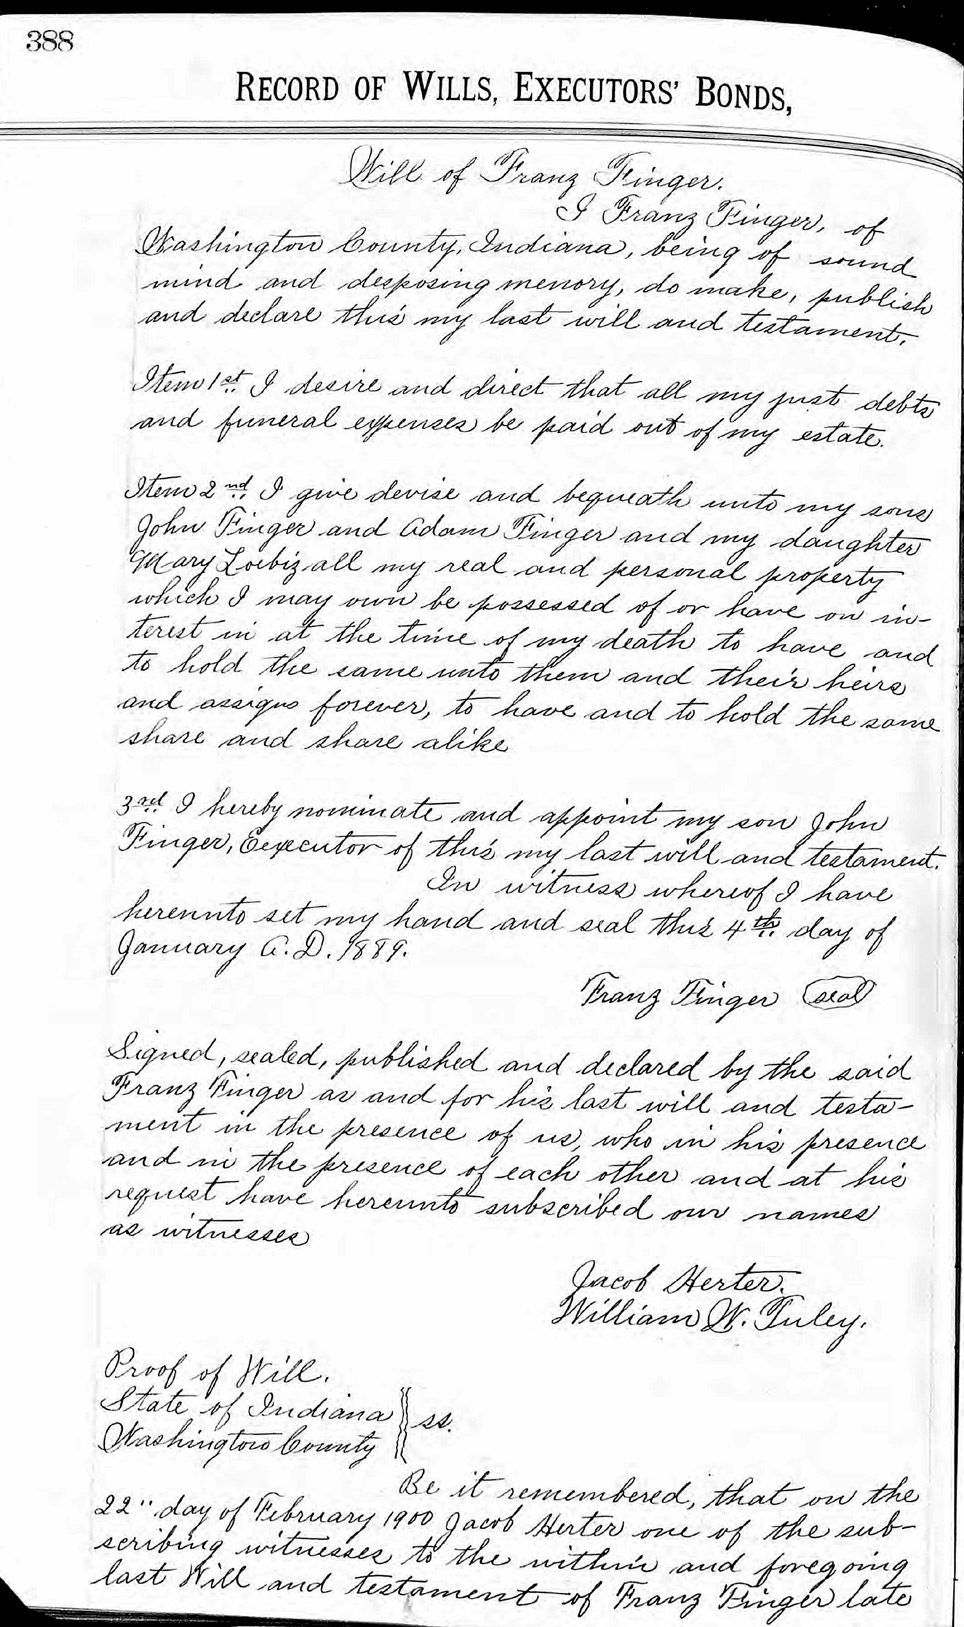 388
RECORD OF WILLS, EXECUTORS' BONDS,
Will of Franz Finger.
I Franz Finger, of
Washington County, Indiana, being of sound
mind and desposing menory, do make, publish
and declare this my last will and testament.
Item 1st I desire and direct that all my just debts
and funeral expenses be paid out of my estate.
Item 2nd I give devise and bequeath unto my sons
John Finger and Adam Finger and my daughter
Mary Loebiz all my real and personal property
which I may own be possessed of or have on in-
terest in at the time of my death to have and
to hold the same unto them and their heirs
and assigns forever, to have and to hold the same
share and share alike
3rd I hereby nominate and appoint my son John
Finger, Eexecutor of this my last will and testament.
In witness whereof I have
hereunto set my hand and seal this 4th day of
January A.D. 1889.
Franz Finger seal
Signed, sealed, published and declared by the said
Franz Finger as and for his last will and testa-
ment in the presence of us, who in his presence
and in the presence of each other and at his
request have hereunto subscribed our names
as witnesses
Jacob Herter.
William W. Tuley.
Proof of Will.
State of Indiana } ss.
Washington County
Be it remembered, that on the
22" day of February 1900 Jacob Herter one of the sub-
scribing witnesses to the within and foregoing
last Will and testament of Franz Finger late